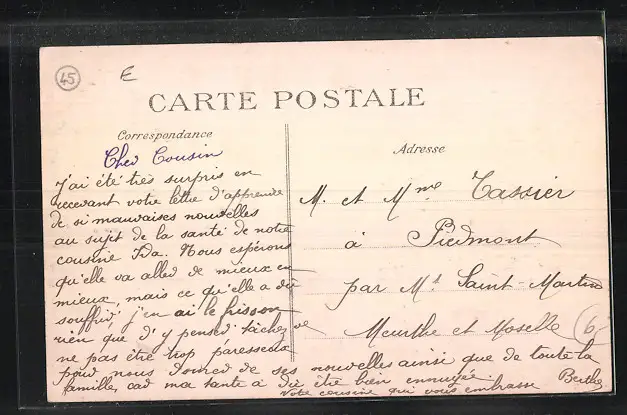 45
E
CARTE POSTALE
Correspondance
Cher Cousin
J'ai été très surpris en
recevant votre lettre d'apprendre
de si mauvaises nouvelles
au sujet de la santé de notre
cousine Ida. Nous espérons
qu'elle va aller de mieux en
mieux, mais ce qu'elle a dû
souffrir, j'en ai le frisson
rien que d'y penser tâchez de
ne pas être trop paresseux
pour nous donner de ses nouvelles ainsi que de toute la
famille, car ma tante a dû être bien ennuyée. Berthe
Votre cousine qui vous embrasse
Adresse
M. et Mme Tassier
à Piedmont
par Mt Saint-Martin
Meurthe et Moselle
6